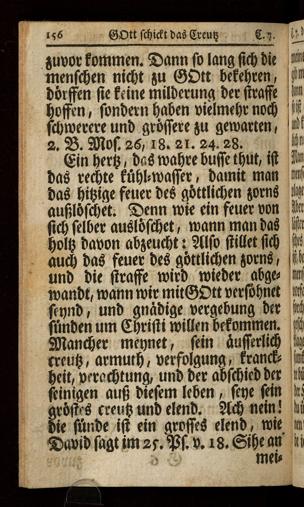 156 GOtt schickt das Creutz C. 7.
zuvor kommen. Dann so lang sich die
menschen nicht zu GOtt bekehren,
dörffen sie keine milderung der straffe
hoffen, sondern haben vielmehr noch
schwerere und grössere zu gewarten,
2. B. Mos. 26, 18. 21. 24. 28.
Ein hertz, das wahre busse thut, ist
das rechte kühl-wasser, damit man
das hitzige feuer des göttlichen zorns
außlöschet. Denn wie ein feuer von
sich selber auslöschet, wann man das
holtz davon abzeucht: Also stillet sich
auch das feuer des göttlichen zorns,
und die straffe wird wieder abge-
wandt, wann wir mit GOtt versöhnet
seynd, und gnädige vergebung der
sünden um Christi willen bekommen.
Mancher meynet, sein äusserlich
creutz, armuth, verfolgung, kranck-
heit, verachtung, und der abschied der
seinigen auß diesem leben, seye sein
gröstes creutz und elend. Ach nein!
die sünde ist ein grosses elend, wie
David sagt im 25. Ps. v. 18. Sihe an
mei-